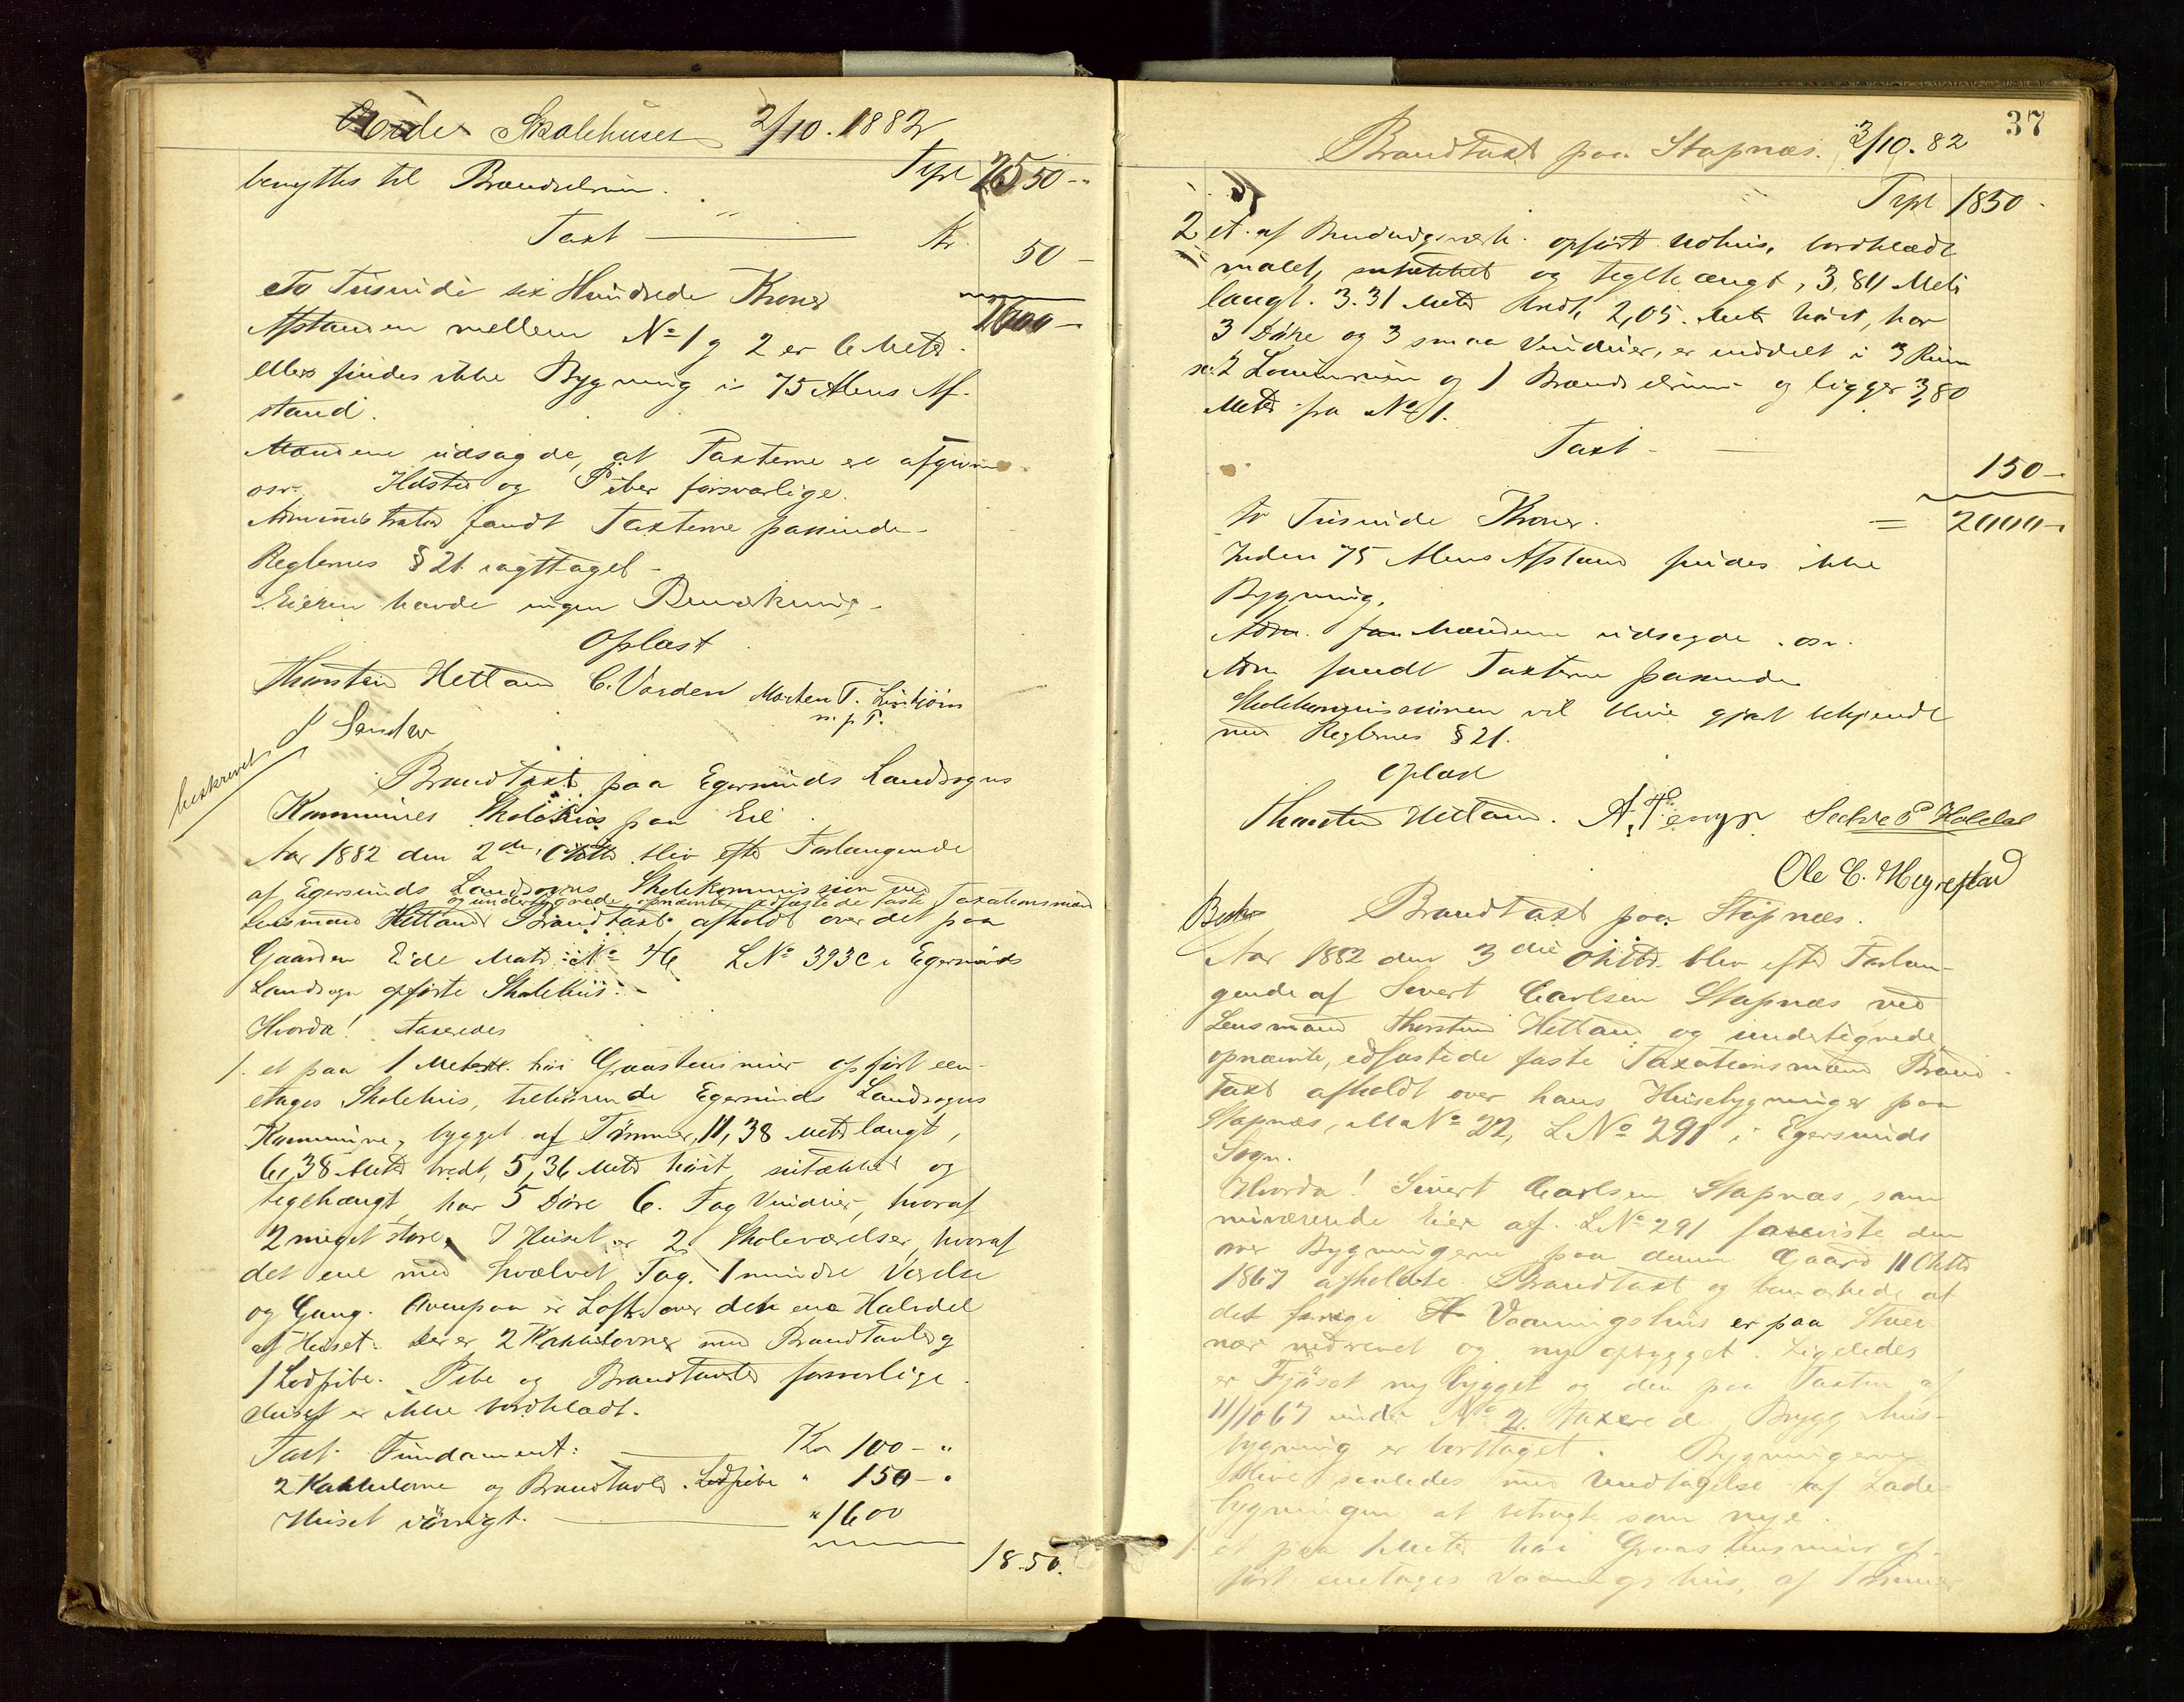 Skolehuset 2/10. 1882
benyttes til Brændselrum. Trpt 2550-"
Taxt — Kr. 50-
To Tusinde sex Hundrede Kroner 2600-
Afstanden mellem No 1 g 2 er 6 Metr.
ellers findes ikke Bygning i 75 Alens Af-
stand.
Mændene udsagde, at Taxterne ere afgivne
osv. Ildsted og Piber forsvarlige.
Administrator fandt Taxterne passende.
Reglernes § 21 iagttaget-
Eieren havde ingen Bemærkning.
Oplæst
Thorsten Hetland C. Varden Morten T.
m. p. P.
beskrevet
Brandtaxt paa Egersunds Landsogns
Kommunes Skolehus paa Eie
Aar 1882 den 2den Oktbr. blev efter Forlangende
af Egersunds Landsogns Skolekommission ved
og undertegnede opnævnte edfæstede faste Taxationsmænd
Lensmand Hetland Brandtaxt afholdt over det paa
Gaarden Eide Matr. No 46 LNo 393c i Egersunds
Landsogn opførte Skolehus.-
Hvorda! taxeredes
1. et paa 1 Meter høi Graastensmur opført een-
etages Skolehus, tilhørende Egersunds Landsogns
Kommune, bygget af Tømmer, 11,38 Metr langt,
6,38 Metr bredt, 5,36 Metr høit, og
teglhængt, har 5 Døre 6. Fag Vinduer, hvoraf
2 meget store. I Huset er 2 Skoleværelser, hvoraf
det ene med hvælvet Tag. 1 mindre Værelse
og Gang. Ovenpaa er Loft over den ene Halvdel
af Huset. Der er 2 Kakkelovne med Brandtavle g
1 Lodpibe. Pibe og Brandtavler forsvarlige.
Huset er ikke bordklædt.
Taxt. Fundament: — Kr 100-"
2 Kakkelovne og Brandtavler. Lodpibe " 150-"
Huset iøvrigt. — " 1600
1850.
37
Brandtaxt paa Stapnæs. 3/10. 82
Trpt 1850-
2 et af Bindingsværk opført Udhus, bordklædt
malet, og teglhængt, 3,84 Metr
langt. 3.31 Metr bredt, 2,05. Metr høit, har
3 Døre og 3 smaa Vinduer, er inddelt i 3 Rum
sc: 2 Lokumrum og 1 Brændselrum og ligger 3,80
Metr fra No 1.
Taxt - — 150-
to Tusinde Kroner. = 2000-
Inden 75 Alens Afstand findes ikke
Bygning.
Adm. fan Mændene udsagde osv.
Adm fandt Taxterne passende
Skolekommissionen vil blive gjort bekjendt
med Reglernes § 21.
Oplæst
Thorsten Hetland. Ole C. Hegrestad
Brandtaxt paa Stapnæs.
Aar 1882 den 3die Oktbr. blev efter Forlan-
gende af Sivert Carlsen Stapnæs ved
Lensmand Thorsten Hetland og undertegnede
opnævnte, edfæstede faste Taxationsmænd Brand-
taxt afholdt over hans Husebygninger paa
Stapnæs, MNo 22, LNo 291 i Egersunds
Sogn.
Hvorda! Sivert Carlsen Stapnæs, som
nuværende Eier af LNo 291 foreviste den
over Bygningerne paa denne Gaard 11 Oktbr
1867 afholdte Brandtaxt og bemærkede at
det forrige Vaaningshus er paa Stuer
nær nedrevet og ny opbygget. Ligeledes
er Fjøset ny bygget og den paa Taxten af
11/10 67 under No 2. taxerede Bryggehus-
bygning er borttaget. Bygningerne
blive saaledes med Undtagelse af Lade-
bygningen at betragte som nye.
1. et paa 1 Metr høi Graastensmur op-
ført eenetages Vaaningshus, af Tømmer